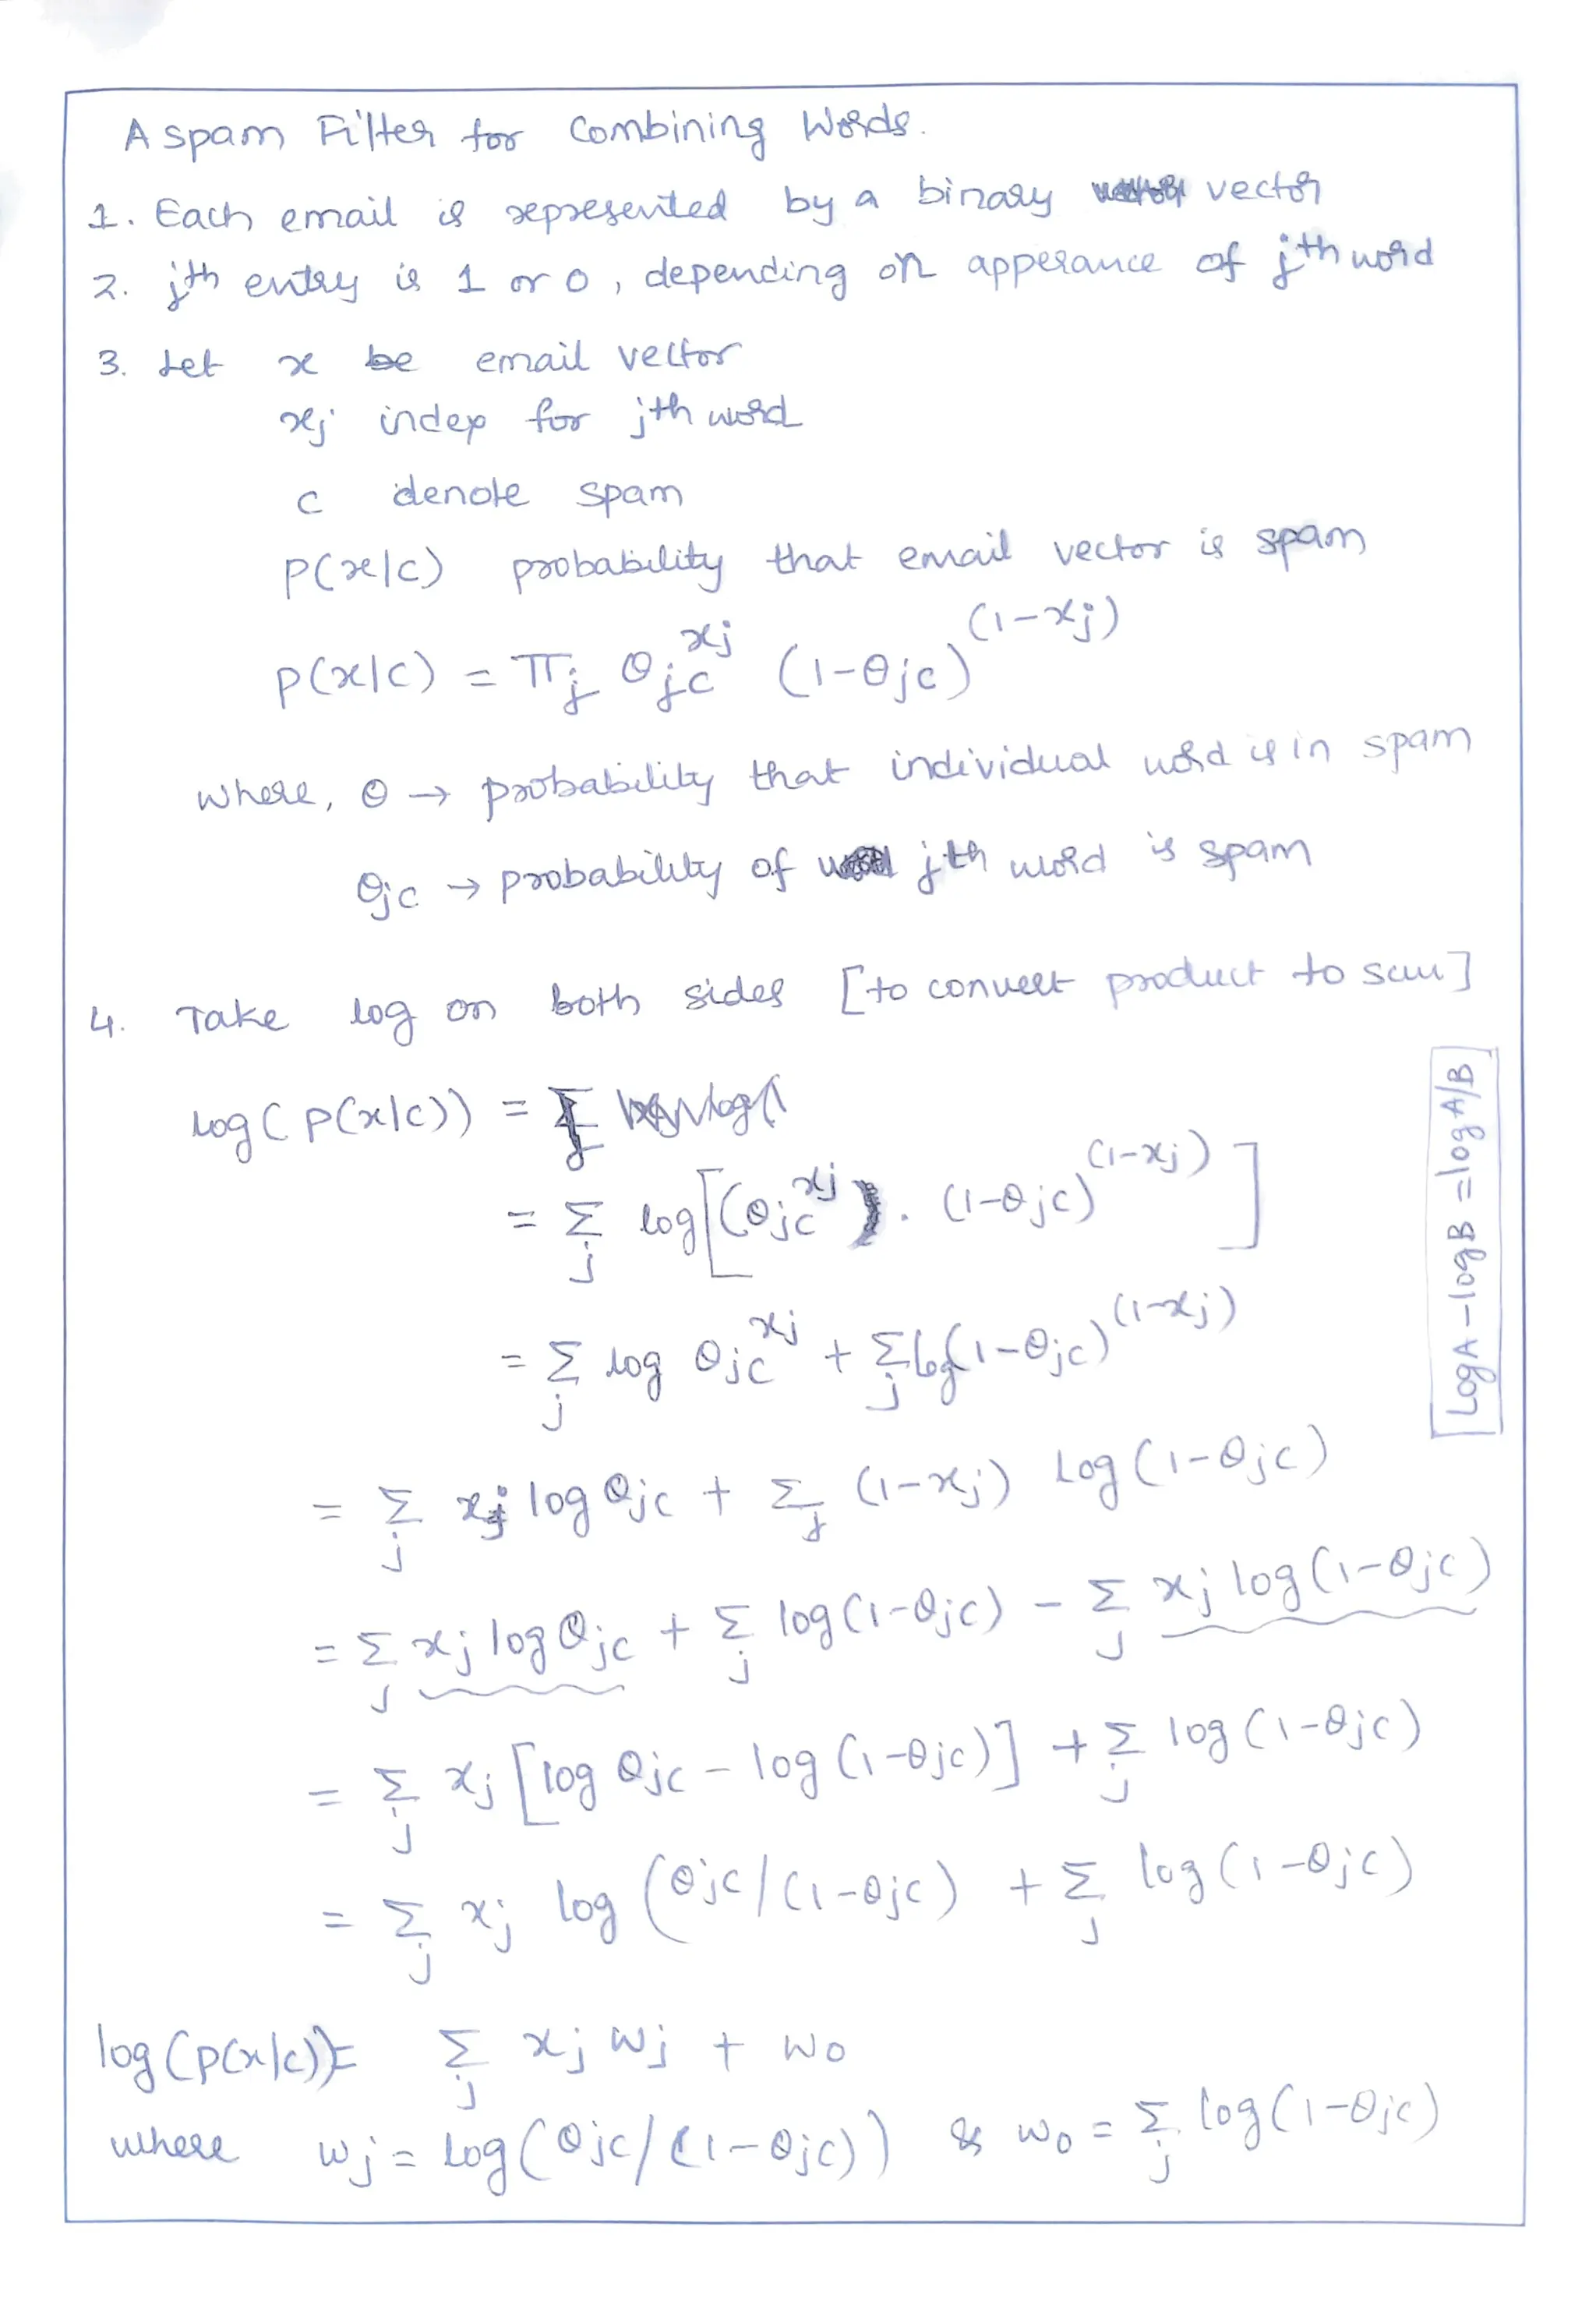 A spam Filter for Combining Words.
1. Each email is represented by a binary vector
2. jth entry is 1 or 0, depending on apperance of jth word
3. Let x be email vector
xj index for jth word
c denote spam
P(x|c) probability that email vector is spam
p(x|c) = πj θjc^xj (1-θjc)^(1-xj)
where, θ → probability that individual word is in spam
θjc → probability of jth word is spam
4. Take log on both sides [to convert product to sum]
log(p(x|c)) = Σj log(
= Σj log[(θjc^xj). (1-θjc)^(1-xj)]
= Σj log θjc^xj + Σj log(1-θjc)^(1-xj)
= Σj xj log θjc + Σj (1-xj) Log(1-θjc)
= Σj xj log θjc + Σj log(1-θjc) - Σj xj log(1-θjc)
= Σj xj [log θjc - log(1-θjc)] + Σj log(1-θjc)
= Σj xj log (θjc/(1-θjc) + Σj log(1-θjc)
log(p(x|c)) = Σj xj wj + w0
where wj = log(θjc/(1-θjc)) & w0 = Σj log(1-θjc)
LogA - logB = log A/B